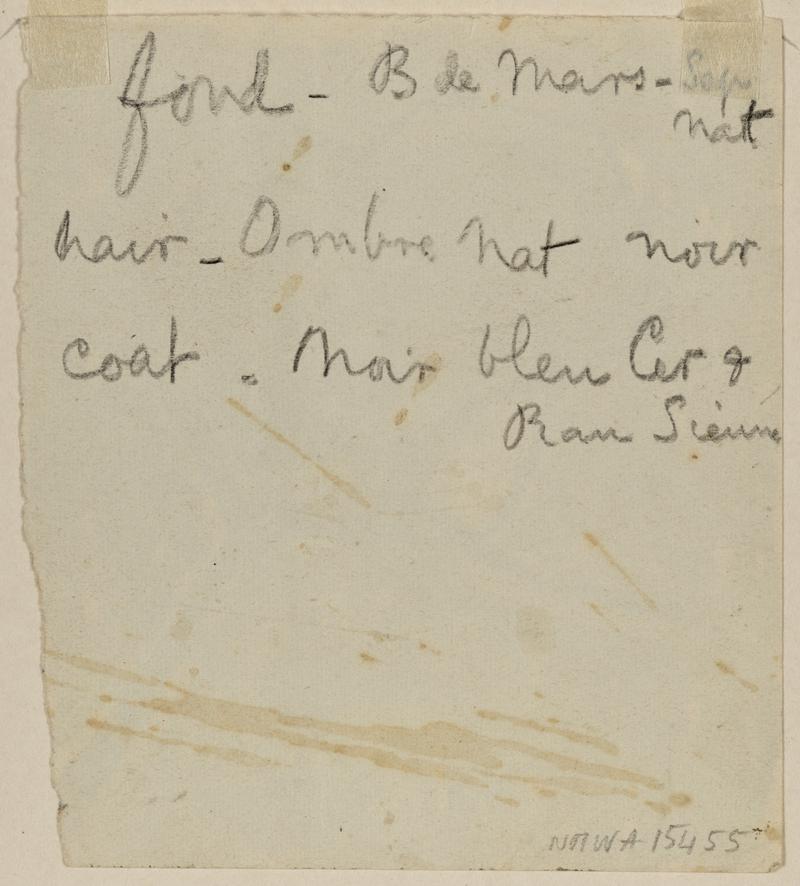 fond - B de Mars - Sep
nat
hair - Ombre nat noir
coat - Noir bleu Cer &
Rau Sienne
NMWA 15455